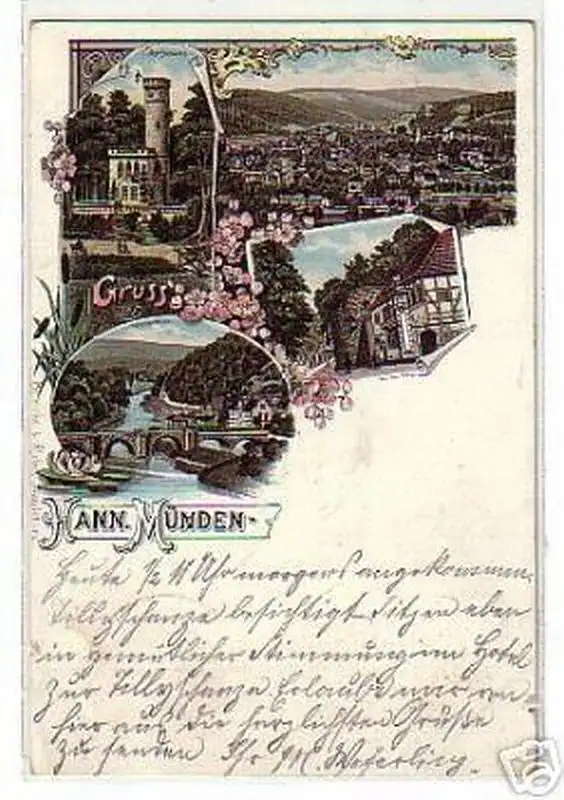 Gruss
HANN. MÜNDEN
Heute 1/2 11 Uhr morgens angekommen.
Tillyschanze besichtigt. Sitzen eben
in gemütlicher Stimmung im Hotel
zur Tillyschanze. Erlaube mir von
hier aus die herzlichsten Grüße
zu senden Ihr M.